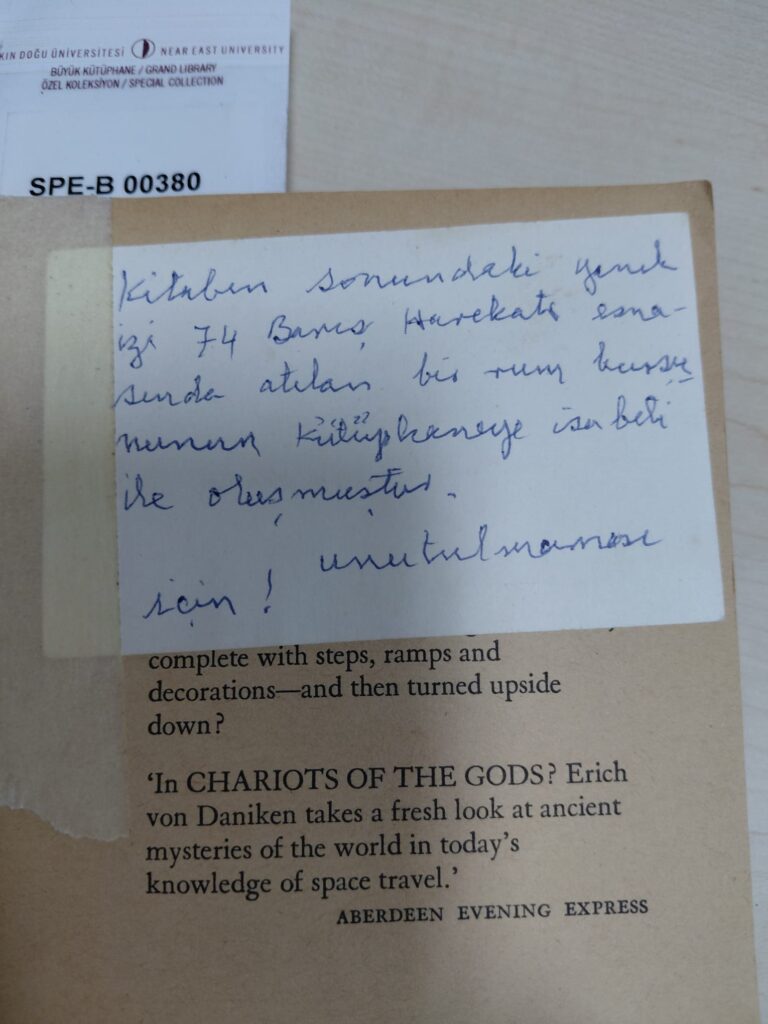 KIN DOĞU ÜNİVERSİTESİ NEAR EAST UNIVERSITY
BÜYÜK KÜTÜPHANE / GRAND LIBRARY
ÖZEL KOLEKSİYON / SPECIAL COLLECTION
SPE-B 00380
Kitabın sonundaki yanık
izi 74 Barış Harekatı esna-
sında atılan bir rum kurşu
nunun Kütüphaneye isabeti
ile oluşmuştur.
unutulmaması
için!
complete with steps, ramps and
decorations—and then turned upside
down?
‘In CHARIOTS OF THE GODS? Erich
von Daniken takes a fresh look at ancient
mysteries of the world in today’s
knowledge of space travel.’
ABERDEEN EVENING EXPRESS